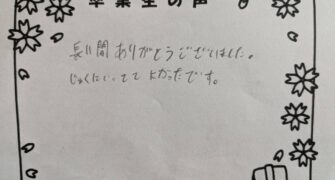 卒業生の声
長い間ありがとうございました。
じゅくにいってて よかったです。